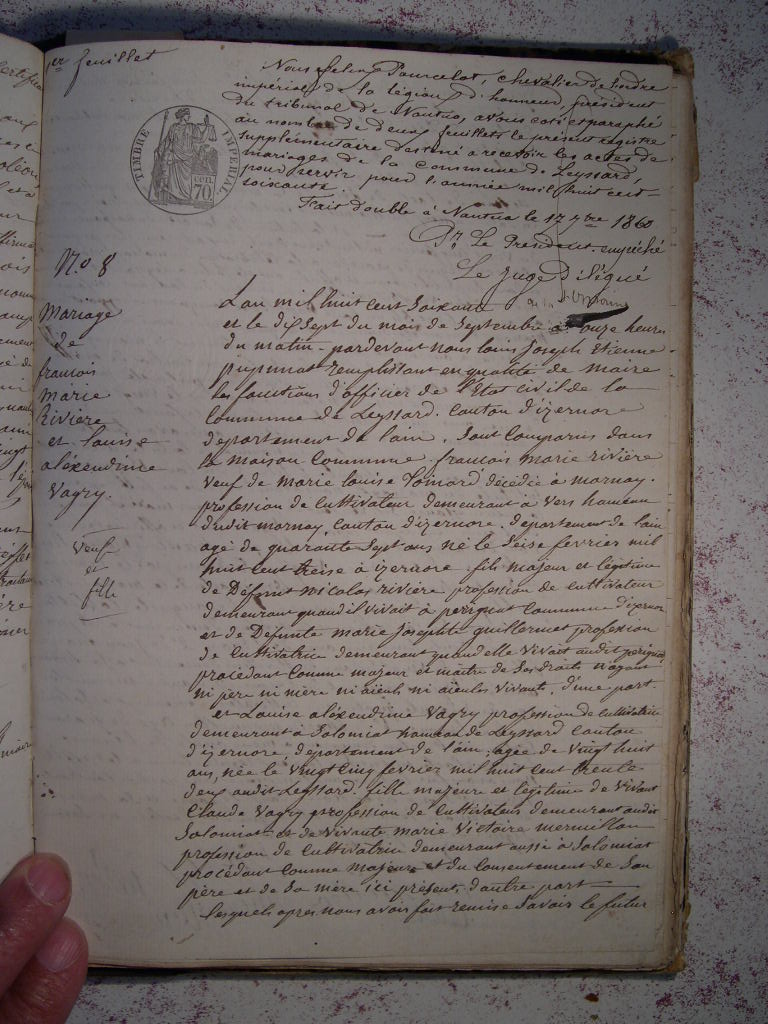 1er feuillet
Nous felix Pourcelot, chevalier de l'ordre
impérial de la légion d'honneur, président
du tribunal de Nantua, avons coté et paraphé
au nombre de deux feuillets le présent registre
supplémentaire destiné à recevoir les actes de
mariages de la commune de Leyssard,
pour servir pour l'année mil huit cent
soixante.
Fait double à Nantua le 17 7bre 1860
Pr. Le Président empêché
Le Juge délégué
TIMBRE IMPERIAL
70
N.o 8
Mariage
de
francois
marie
Riviere
et louise
aléxendrine
Vagry.
Veuf
et
fille
L'an mil huit cent Soixante
et le dix Sept du mois de Septembre à onze heures
du matin pardevant nous louis Joseph Etienne
remplissant en qualité de maire
les fonctions d'officier de l'Etat Civil de la
Commune de Leyssard. Canton d'izernore
departement de lain, Sont Comparus dans
la maison Commune francois marie rivière
veuf de marie louise décédée à mornay.
profession de Cultivateur demeurant à Vers hameau
dudit mornay, Canton d'izernore, departement de lain
agé de quarante Sept ans né le Seise fevrier mil
huit cent treise à izernore fils majeur et légitime
de Défunt nicolas rivière profession de cultivateur
demeurant quand il vivait à perignat Commune d'izernore
et de Défunte marie Josephte guillermet profession
de Cultivatrice demeurant quand elle Vivait audit perignat
procédant Comme majeur et maitre de Ses droits n'ayant
ni père ni mère ni aïeuls ni aïeules Vivants, d'une part.
et Louise aléxendrine Vagry profession de Cultivatrice
demeurant à Solomiat hameau de Leyssard Canton
d'izernore, département de l'ain, agée de Vingt huit
ans, née le Vingt Cinq fevrier mil huit Cent trente
deux audit Leyssard. fille majeure et légitime de Vivant
Claude Vagry profession de Cultivateur demeurant audit
Solomiat et de Vivante marie Victoire mermillon
profession de Cultivatrice demeurant aussi à Solomiat
procédant Comme majeure et du Consentement de Son
père et de Sa mère ici présents, d'autre part
lesquels apres nous avoir fait remise Savoir le futur